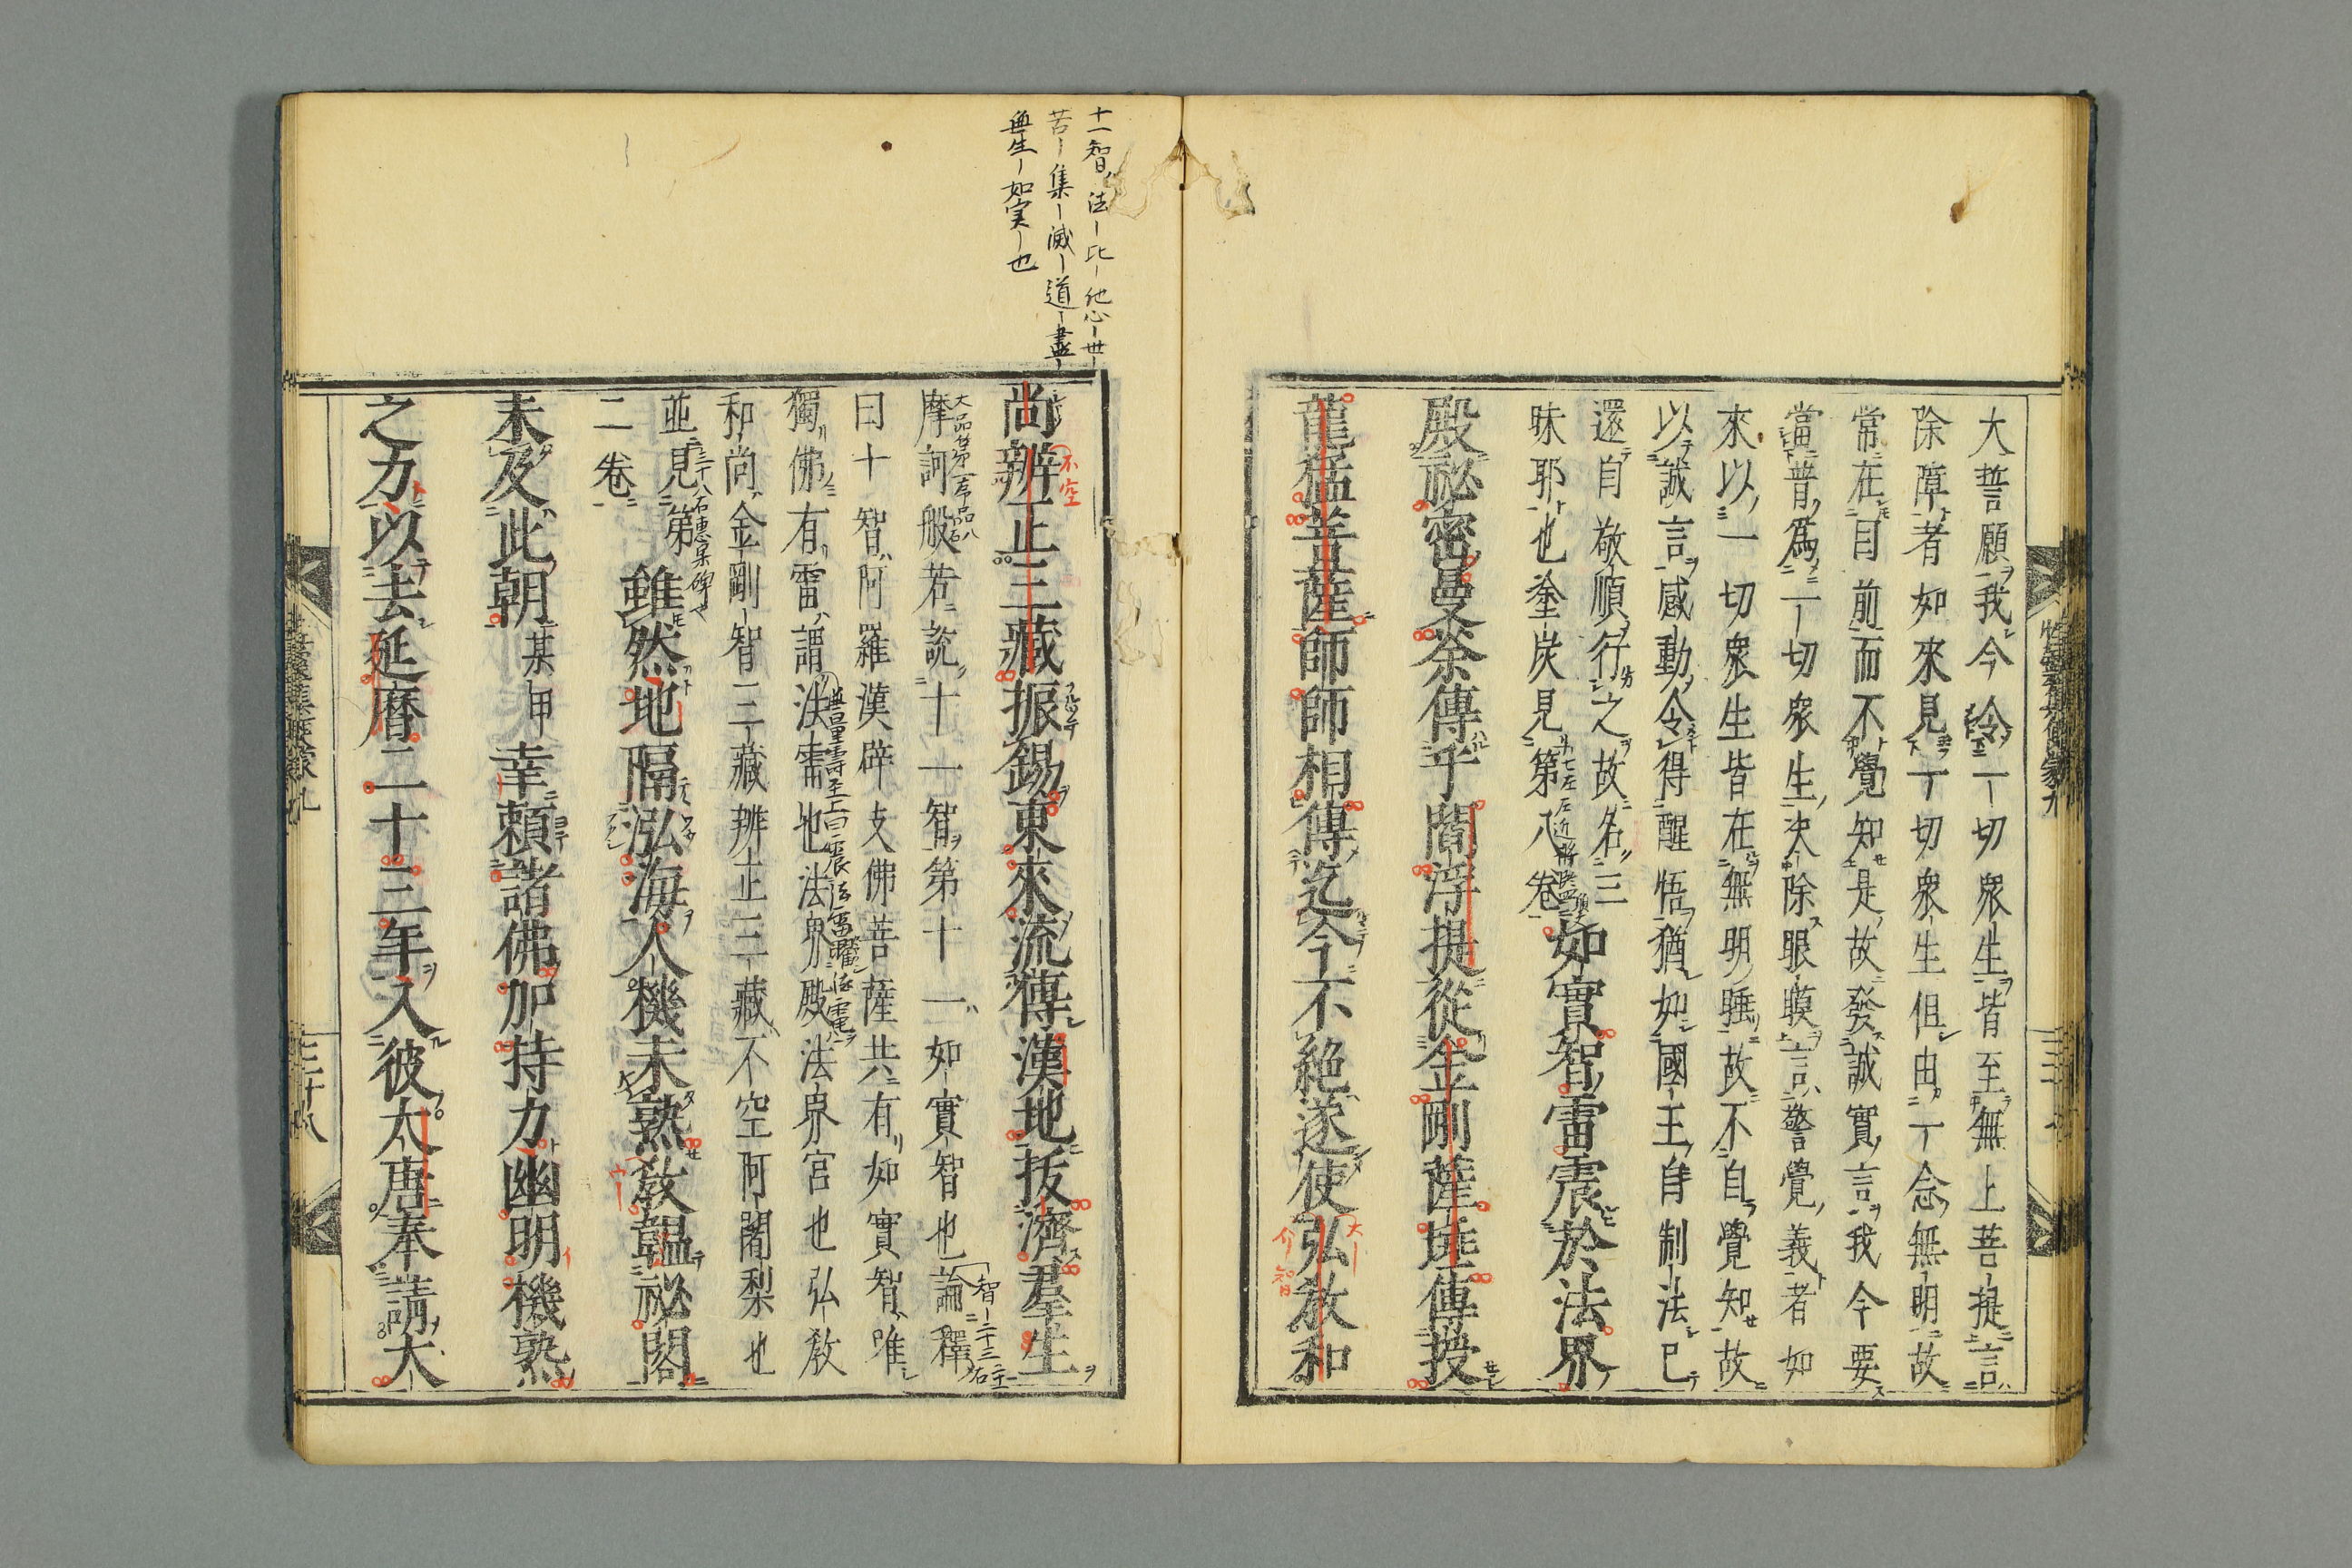 大誓願我今令一切衆生皆至無上菩提言
除障者如來見一切衆生但由一念無明故
常在目前而不覺知是故發誠實言我今要
當普爲一切衆生決除眼膜言警覺義者如
來以一切衆生皆在無明睡故不自覺知故
以誠言感動令得醒悟猶如國王自制法已
還自敬順行之故名三
昧耶也塗炭見第八卷如實智雷震於法界
殿祕密曼荼傳乎閻浮提從金剛薩埵傳授
龍猛菩薩師師相傳迄今不絶遂使弘敎和
十一智法ー比ー他心ー世ー
苦ー集ー滅ー道ー盡ー
無生ー如実ー也
尚辨正三藏振錫東來流傳漢地拔濟羣生
不空
摩訶般若説十一智第十一如實智也論釋
曰十智阿羅漢辟支佛菩薩共有如實智唯
獨佛有雷謂法雷也法界殿法界宮也弘敎
和尚金剛智三藏辨正三藏不空阿闍梨也
並見第
二卷雖然地隔泓海人機未熟敎韞祕閣
未及此朝某甲幸頼諸佛加持力幽明機熟
之力以去延曆二十三年入彼大唐奉請大
三十八